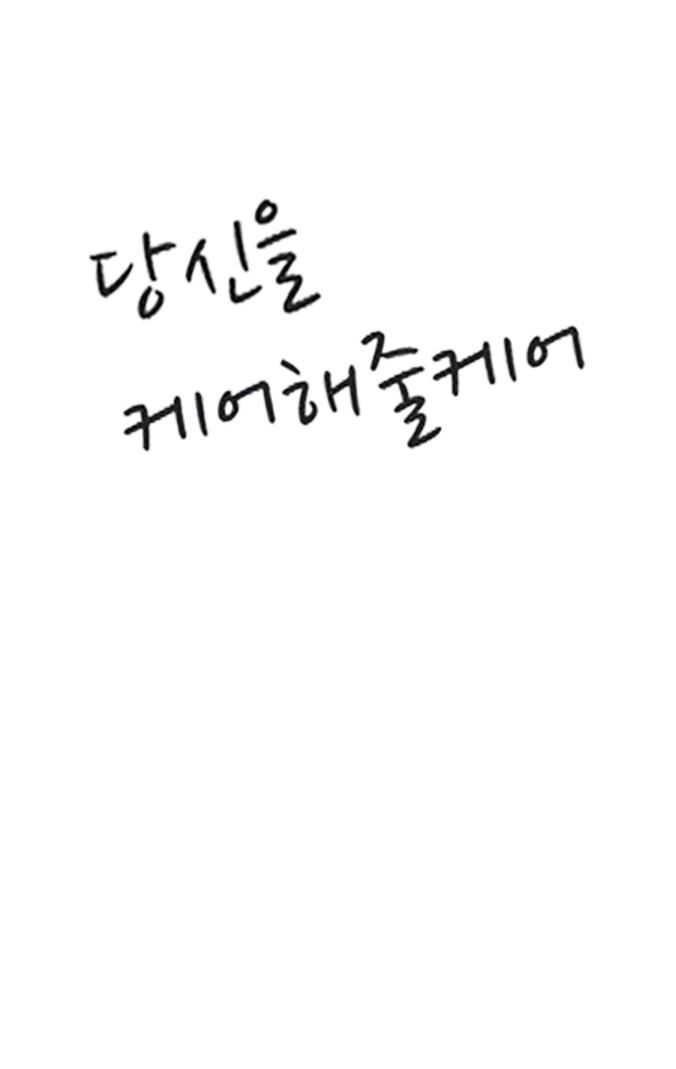 당신을
케어해줄케어